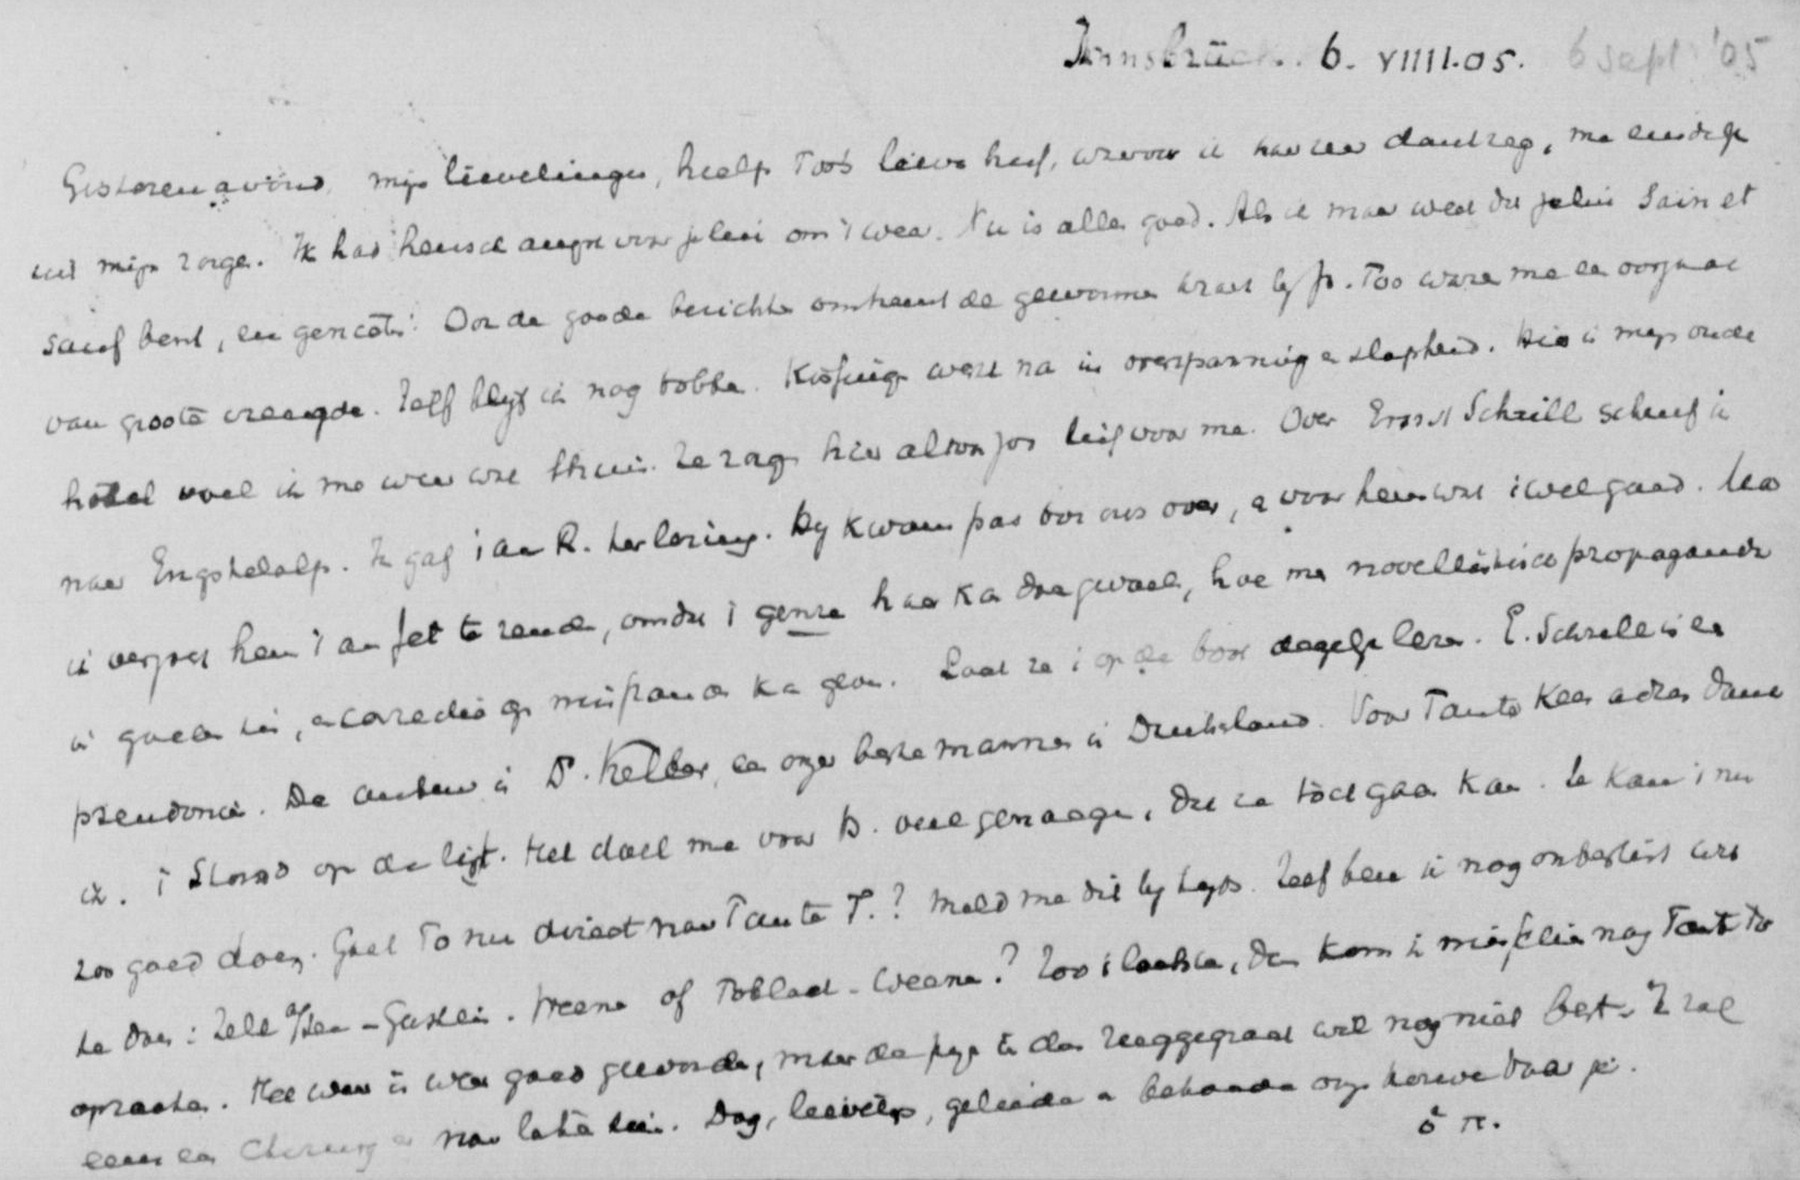 Innsbrück. 6. VIIII.05. 6 sept '05
Gisteren avond, mijn lievelingen, hielp Too's lieve brief, waarvoor ik haar zeer dank zeg, me eindelijk
uit mijn zorgen. Ik had heusch angst voor jelui om 't weer. Nu is alles goed. Als ik maar weet dat jelui sain et
sauf bent, en geniet! Ook de goede berichten omtrent de gewonnen kracht bij p. Too waren me een oorzaak
van groote vreugde. Zelf blijf ik nog tobben. na in overspanning en slapheid. Hier in mijn oude
hôtel voel ik me weer wat thuis. Ze zorgen hier altijd zoo lief voor me. Over Ernst Schrill schreef ik
naar Engstelalp. Ik gaf 't aan R. ter lezing. Hij kwam pas bij ons over, en voor hem was 't wel goed. Maar
ik vergat hem 't aan Jet te zenden, omdat 't genre haar kan doen gevoelen, hoe men novellistische propaganda
in goeden zin, en Laat ze 't op de boot dadelijk lezen. E. Schrille is een
pseudoniem. De auteur is Dr. Keller, een onzer beste mannen in Duitschland. Voor Tante Kees adres dank
ik. 't Stond op de lijst. Het doet me voor B. veel genoegen, dat ze toch gaan kan. Ze kan 't nu
zoo goed doen. Gaat To nu direct naar Tante T.? Meld me dit bij tijds. Zelf ben ik nog onbeslist wat
te doen: Zell a/See - Gastein - Weenen of Toblach - Weenen? Zoo 't laatste, dan kom ik misschien nog Tante To
opzoeken. Het weer is weer goed geworden, maar de pijn in den ruggegraat wil nog niet best. Ik zal
eens een chirurg er naar laten zien. Dag, lieveling, geleide en behoede onze Heere Vader je.
ô π.